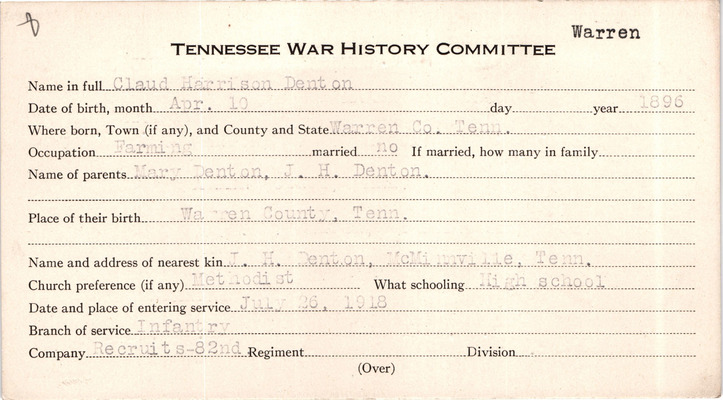 Warren
TENNESSEE WAR HISTORY COMMITTEE
Name in full Claud Harrison Denton
Date of birth, month Apr. 10 day year 1896
Where born, Town (if any), and County and State Warren Co. Tenn.
Occupation Farming married no If married, how many in family
Name of parents Mary Denton, J. H. Denton.
Place of their birth Warren County, Tenn.
Name and address of nearest kin J. H. Denton, McMinnville, Tenn.
Church preference (if any) Methodist What schooling High school
Date and place of entering service July 26, 1918
Branch of service Infantry
Company Recruits-82nd Regiment Division
(Over)